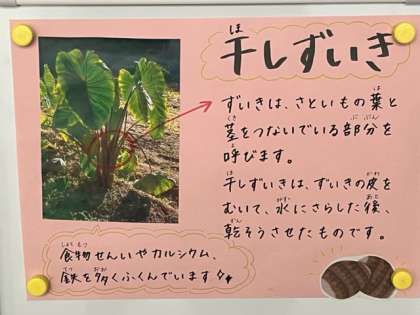 干しずいき
ずいきは、さといもの葉と
茎をつないでいる部分を
呼びます。
干しずいきは、ずいきの皮を
むいて、水にさらした後、
乾そうさせたものです。
食物せんいやカルシウム、
鉄を多くふくんでいます